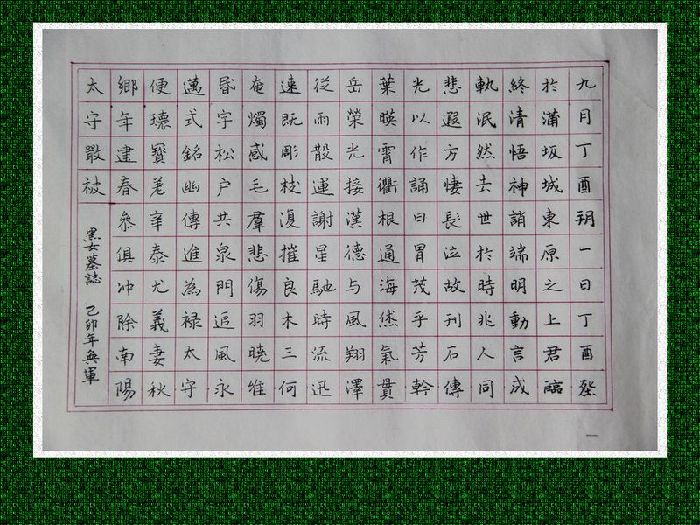 九月丁酉朔一日丁酉葬
於蒲坂城東原之上君臨
終清悟神誚端明動言成
軌泯然去世於時兆人同
悲遐方悽長泣故刊石傳
光以作誦曰冑茂乎芳幹
葉暎霄衢根通海氣貫
岳榮光接漢德与風翔澤
從雨散運謝星馳時流迅
速既彫桂復摧良木三何
奄燭感毛羣悲傷羽曉維
昏宇松户共泉門追風永
邁式銘幽傳進為祿太守
便瓌寶差辛泰尤義妻秋
鄉年建春參俱沖除南陽
太守嚴祓
黑女墓誌 己卯年興軍